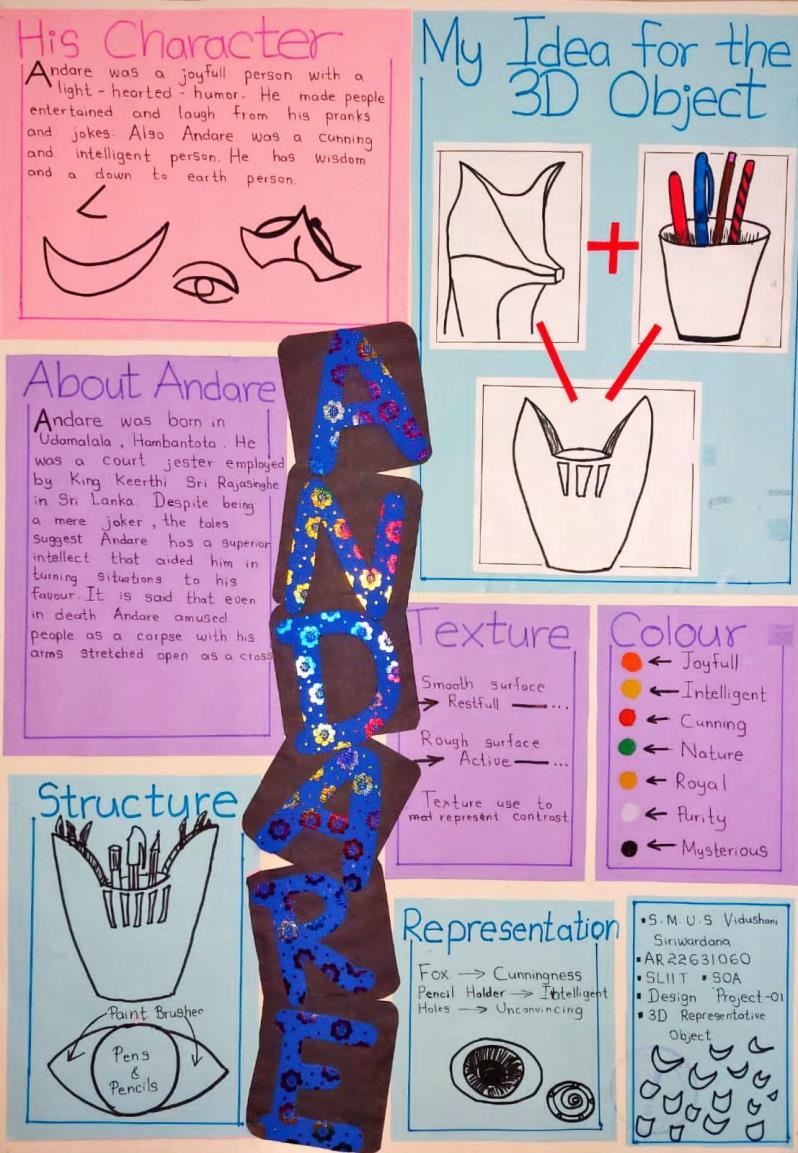 His Character
Andare was a joyfull person with a
light - hearted - humor. He made people
entertained and laugh from his pranks
and jokes. Also Andare was a cunning
and intelligent person. He has wisdom
and a down to earth person.
My Idea for the
3D Object
+
About Andare
Andare was born in
Udamalala , Hambantota . He
was a court jester employed
by King Keerthi Sri Rajasinghe
in Sri Lanka. Despite being
a mere joker , the tales
suggest Andare has a superior
intellect that aided him in
turning situations to his
favour. It is said that even
in death Andare amused
people as a corpse with his
arms stretched open as a cross
ANDARE
Texture
Smooth surface
→ Restfull — ...
Rough surface
→ Active — ...
Texture use to
represent contrast
Colour
← Joyfull
← Intelligent
← Cunning
← Nature
← Royal
← Purity
← Mysterious
Structure
Paint Brushes
Pens
&
Pencils
Representation
Fox → Cunningness
Pencil Holder → Intelligent
Holes → Unconvincing
▪ S.M.U.S Vidushani
Siriwardana
▪ AR22631060
▪ SLIIT ▪ SOA
▪ Design Project-01
▪ 3D Representative
Object